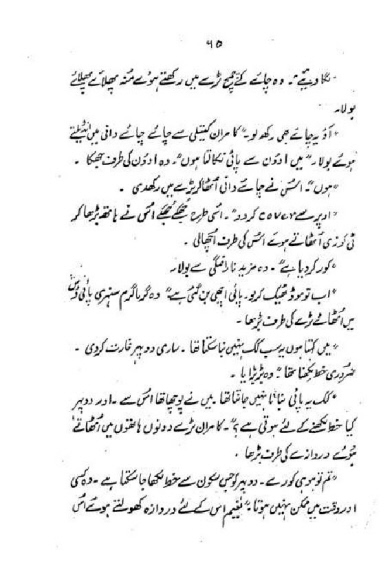 ۹۵
لگا دیئے"۔ وہ چائے کے مگ ٹرے میں رکھتے ہوئے منہ پھلائے پھلائے
بولا۔
"آؤ یہ چائے بھی رکھ لو"۔ کامران کیتلی سے چائے چائے دانی میں انڈیلتے
ہوئے بولا۔ "میں اوون سے پائی نکالتا ہوں"۔ وہ اوون کی طرف جھکا۔
"ہوں"۔ اُس نے چائے دانی اُٹھا کر ٹرے میں رکھدی۔
"اوپر سے کور کردو"۔ اسی طرح جھکے جھکے اُس نے ہاتھ بڑھا کر
ٹی کوزی اُٹھاتے ہوئے اُس کی طرف اچھالی۔
"کور کر دیا ہے"۔ وہ مزید ناراضگی سے بولا۔
"اب تو موڈ ٹھیک کر لو۔ پائی اچھی بن گئی ہے" وہ گرما گرم سنہری پائی
میں اُٹھائے ٹرے کی طرف بڑھا۔
"میں کہتا ہوں یہ سب کک بھی بنا سکتا تھا۔ ساری دوپہر غارت کر دی۔
ضروری خط لکھنا تھا"۔ وہ بڑبڑایا۔
"کک یہ پائی بنانا نہیں جانتا تھا۔ میں نے پوچھا تھا اُس سے۔ اور دوپہر
کیا خط لکھنے کے لئے ہوتی ہے؟"۔ کامران ٹرے دونوں ہاتھوں میں اُٹھاتے
ہوئے دروازے کی طرف بڑھا۔
"تم تو ہو ہی کورے۔ دوپہر کو جس سکون سے خط لکھا جا سکتا ہے۔ وہ کسی
اور وقت میں ممکن نہیں ہوتا۔" نعیم اس کے لئے دروازہ کھولتے ہوئے اُس